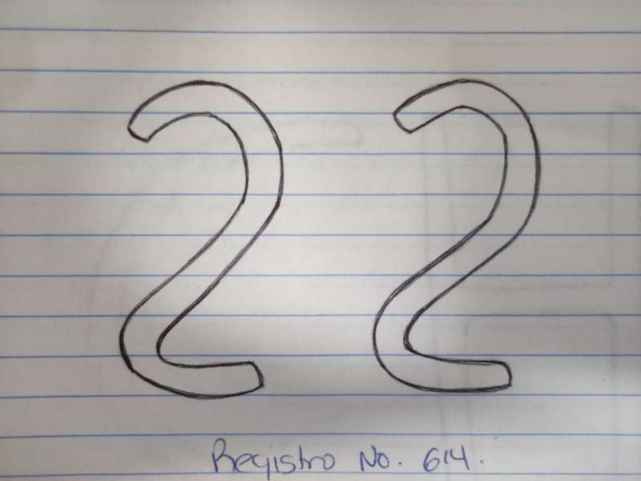 22
Registro No. 614.